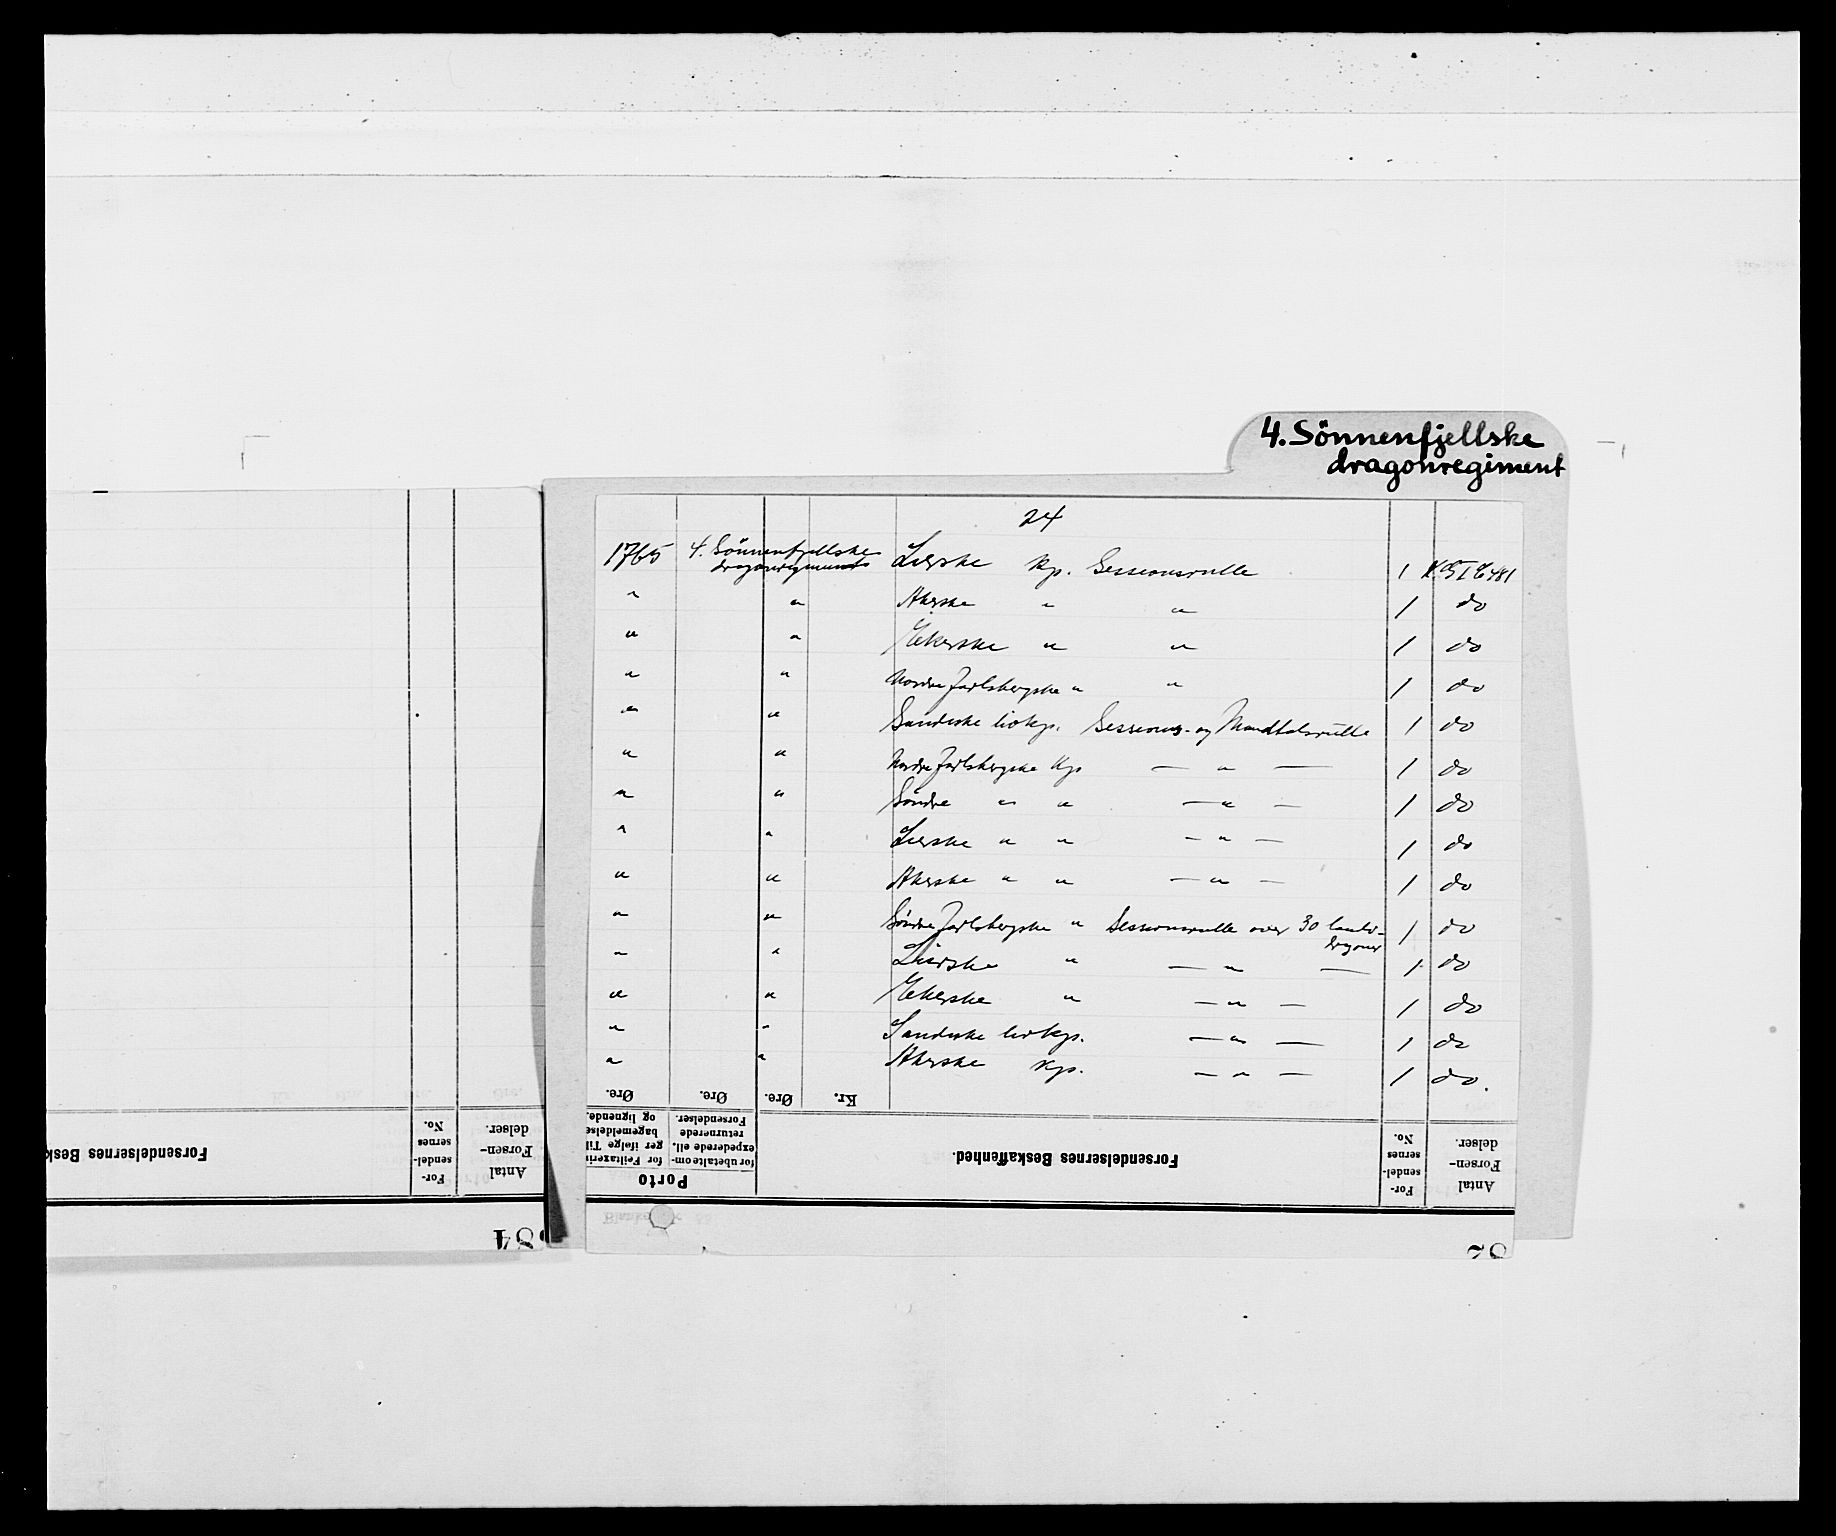 4. Sönnenfjellske
dragonregiment
24
1765 4. Sönnenfjellske dragonregiments Lierske Kp. Sessionsrulle 1 K.G I E 481
" " Akerske " " 1 do
" " Ekerske " " 1 do
" " Nordre Jarlsbergske " " 1 do
" " Sandeske livkp. Sessions- og Mandtalsrulle 1 do
" " Nordre Jarlsbergske Kp — " — 1 do
" " Söndre " " — " — 1 do
" " Lierske " " — " — 1 do
" " Akerske " " — " — 1 do
" " Söndre Jarlsbergske " Sessionsrulle over 30 landdragoner 1 do
" " Lierske " — " — 1 do
" " Ekerske " — " — 1 do
" " Sandeske livkp. — " — 1 do
" " Akerske Kp. — " — 1 do.
Øre. Øre. Øre. Kr.
Porto
for Feiltaxering ifølge Tilbagemeldelse og lignende.
for ubetalte omexpederede ell. returnerede Forsendelser.
Forsendelsernes Beskaffenhed.
Forsendelsernes No.
Antal Forsendelser.
Forsendelsernes Besk
Forsendelsernes No.
Antal Forsendelser.